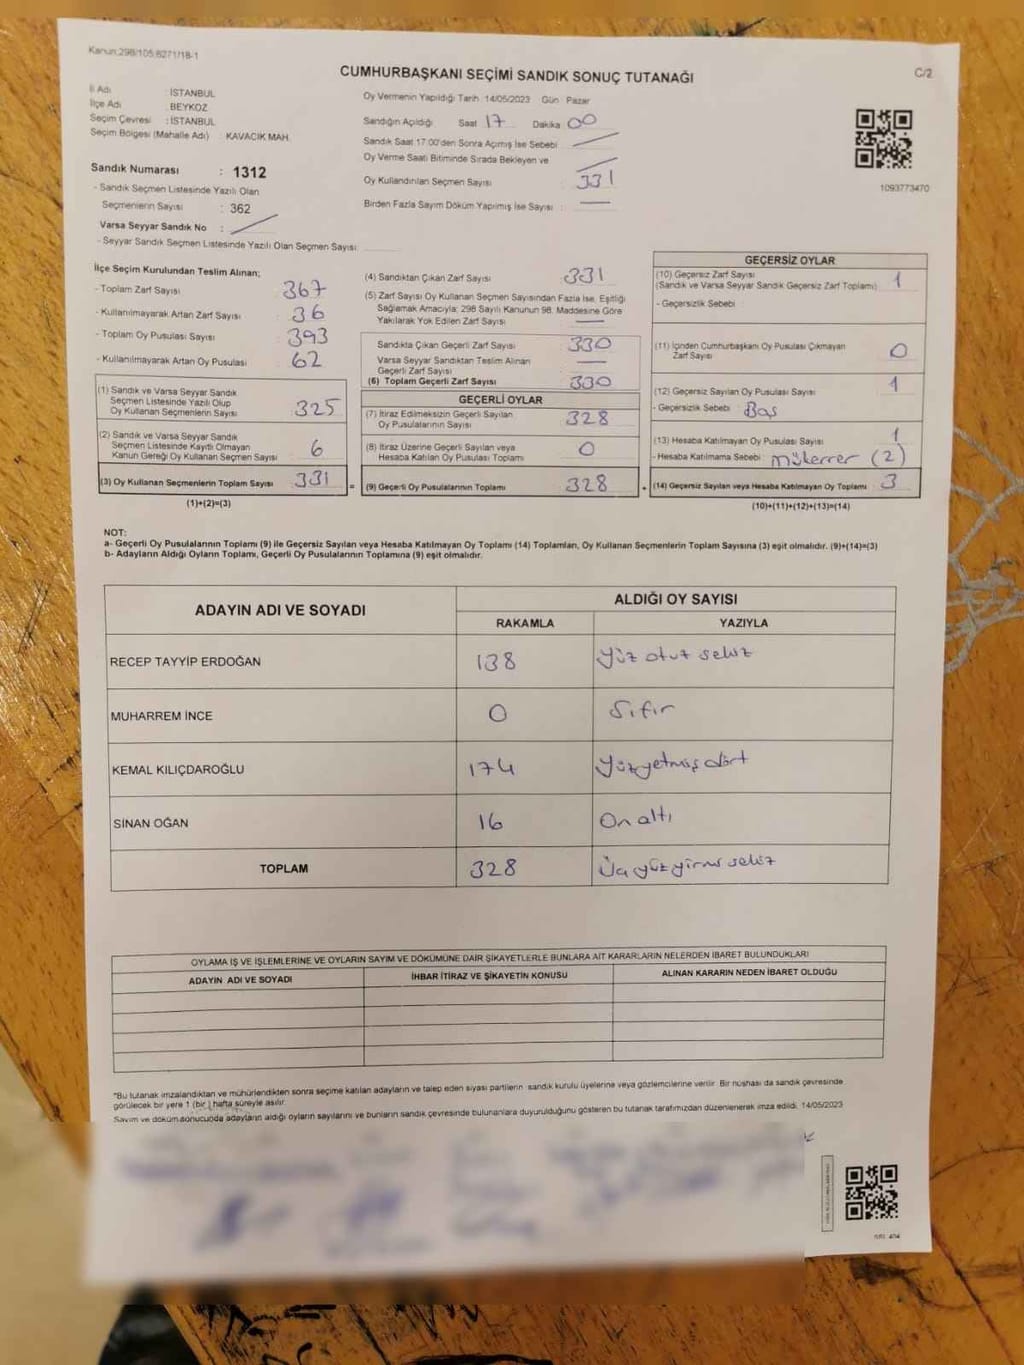 Kanun:298/105,6271/18-1
C/2
CUMHURBAŞKANI SEÇİMİ SANDIK SONUÇ TUTANAĞI
İl Adı : İSTANBUL
İlçe Adı : BEYKOZ
Seçim Çevresi : İSTANBUL
Seçim Bölgesi (Mahalle Adı) : KAVACIK MAH.
Sandık Numarası : 1312
- Sandık Seçmen Listesinde Yazılı Olan
Seçmenlerin Sayısı : 362
Varsa Seyyar Sandık No :
- Seyyar Sandık Seçmen Listesinde Yazılı Olan Seçmen Sayısı:
Oy Vermenin Yapıldığı Tarih 14/05/2023 Gün Pazar
Sandığın Açıldığı Saat 17 Dakika 00
Sandık Saat 17:00'den Sonra Açımış İse Sebebi
Oy Verme Saati Bitiminde Sırada Bekleyen ve
Oy Kullandırılan Seçmen Sayısı : 331
Birden Fazla Sayım Döküm Yapılmış İse Sayısı : —
1093773470
İlçe Seçim Kurulundan Teslim Alınan;
- Toplam Zarf Sayısı : 367
- Kullanılmayarak Artan Zarf Sayısı : 36
- Toplam Oy Pusulası Sayısı : 393
- Kullanılmayarak Artan Oy Pusulası : 62
(1) Sandık ve Varsa Seyyar Sandık
Seçmen Listesinde Yazılı Olup
Oy Kullanan Seçmenlerin Sayısı : 325
(2) Sandık ve Varsa Seyyar Sandık
Seçmen Listesinde Kayıtlı Olmayan
Kanun Gereği Oy Kullanan Seçmen Sayısı : 6
(3) Oy Kullanan Seçmenlerin Toplam Sayısı : 331
(1)+(2)=(3)
(4) Sandıktan Çıkan Zarf Sayısı : 331
(5) Zarf Sayısı Oy Kullanan Seçmen Sayısından Fazla İse, Eşitliği
Sağlamak Amacıyla; 298 Sayılı Kanunun 98. Maddesine Göre
Yakılarak Yok Edilen Zarf Sayısı : —
Sandıkta Çıkan Geçerli Zarf Sayısı : 330
Varsa Seyyar Sandıktan Teslim Alınan
Geçerli Zarf Sayısı : —
(6) Toplam Geçerli Zarf Sayısı : 330
GEÇERLİ OYLAR
(7) İtiraz Edilmeksizin Geçerli Sayılan
Oy Pusulalarının Sayısı : 328
(8) İtiraz Üzerine Geçerli Sayılan veya
Hesaba Katılan Oy Pusulası Toplamı : 0
= (9) Geçerli Oy Pusulalarının Toplamı : 328 +
GEÇERSİZ OYLAR
(10) Geçersiz Zarf Sayısı
(Sandık ve Varsa Seyyar Sandık Geçersiz Zarf Toplamı) : 1
- Geçersizlik Sebebi :
(11) İçinden Cumhurbaşkanı Oy Pusulası Çıkmayan
Zarf Sayısı : 0
(12) Geçersiz Sayılan Oy Pusulası Sayısı : 1
- Geçersizlik Sebebi : Boş
(13) Hesaba Katılmayan Oy Pusulası Sayısı : 1
- Hesaba Katılmama Sebebi : mükerrer (2)
(14) Geçersiz Sayılan veya Hesaba Katılmayan Oy Toplamı : 3
(10)+(11)+(12)+(13)=(14)
NOT:
a- Geçerli Oy Pusulalarının Toplamı (9) ile Geçersiz Sayılan veya Hesaba Katılmayan Oy Toplamı (14) Toplamları, Oy Kullanan Seçmenlerin Toplam Sayısına (3) eşit olmalıdır. (9)+(14)=(3)
b- Adayların Aldığı Oyların Toplamı, Geçerli Oy Pusulalarının Toplamına (9) eşit olmalıdır.
ADAYIN ADI VE SOYADI
ALDIĞI OY SAYISI
RAKAMLA YAZIYLA
RECEP TAYYİP ERDOĞAN 138 Yüz otuz sekiz
MUHARREM İNCE 0 Sıfır
KEMAL KILIÇDAROĞLU 174 Yüzyetmiş dört
SİNAN OĞAN 16 On altı
TOPLAM 328 Üçyüzyirmi sekiz
OYLAMA İŞ VE İŞLEMLERİNE VE OYLARIN SAYIM VE DÖKÜMÜNE DAİR ŞİKAYETLERLE BUNLARA AİT KARARLARIN NELERDEN İBARET BULUNDUKLARI
ADAYIN ADI VE SOYADI İHBAR İTİRAZ VE ŞİKAYETİN KONUSU ALINAN KARARIN NEDEN İBARET OLDUĞU
*Bu tutanak imzalandıktan ve mühürlendikten sonra seçime katılan adayların ve talep eden siyasi partilerin sandık kurulu üyelerine veya gözlemcilerine verilir. Bir nüshası da sandık çevresinde
görülecek bir yere 1 (bir) hafta süreyle asılır.
Sayım ve döküm sonucunda adayların aldığı oyların sayılarını ve bunların sandık çevresinde bulunanlara duyurulduğunu gösteren bu tutanak tarafımızdan düzenlenerek imza edildi. 14/05/2023